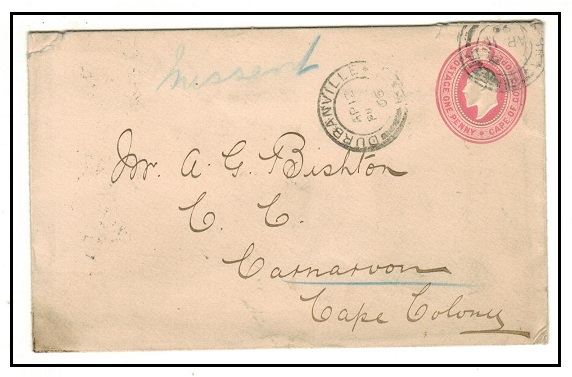 missent
DURBANVILLE
AP 12
PM
05
AP
POSTAGE ONE PENNY * CAPE OF GOOD
Mr. A. G. Bishton
C. C.
Carnarvon
Cape Colony